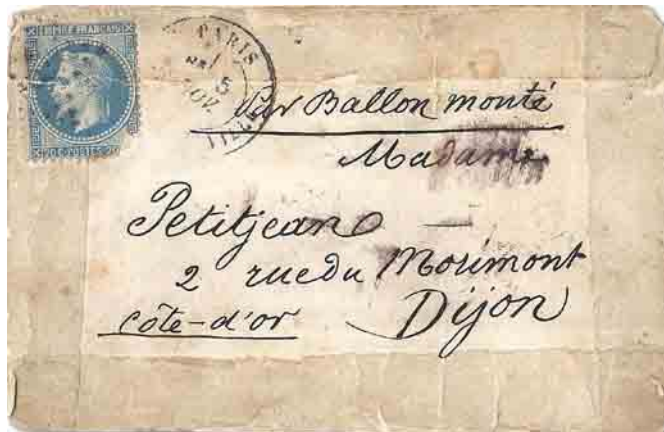 EMPIRE FRANÇAIS
20 C. POSTES 20
PARIS
5
NOV.
Par Ballon monté
Madame
Petitjean
2 rue du Morimont
Dijon
Côte-d'or